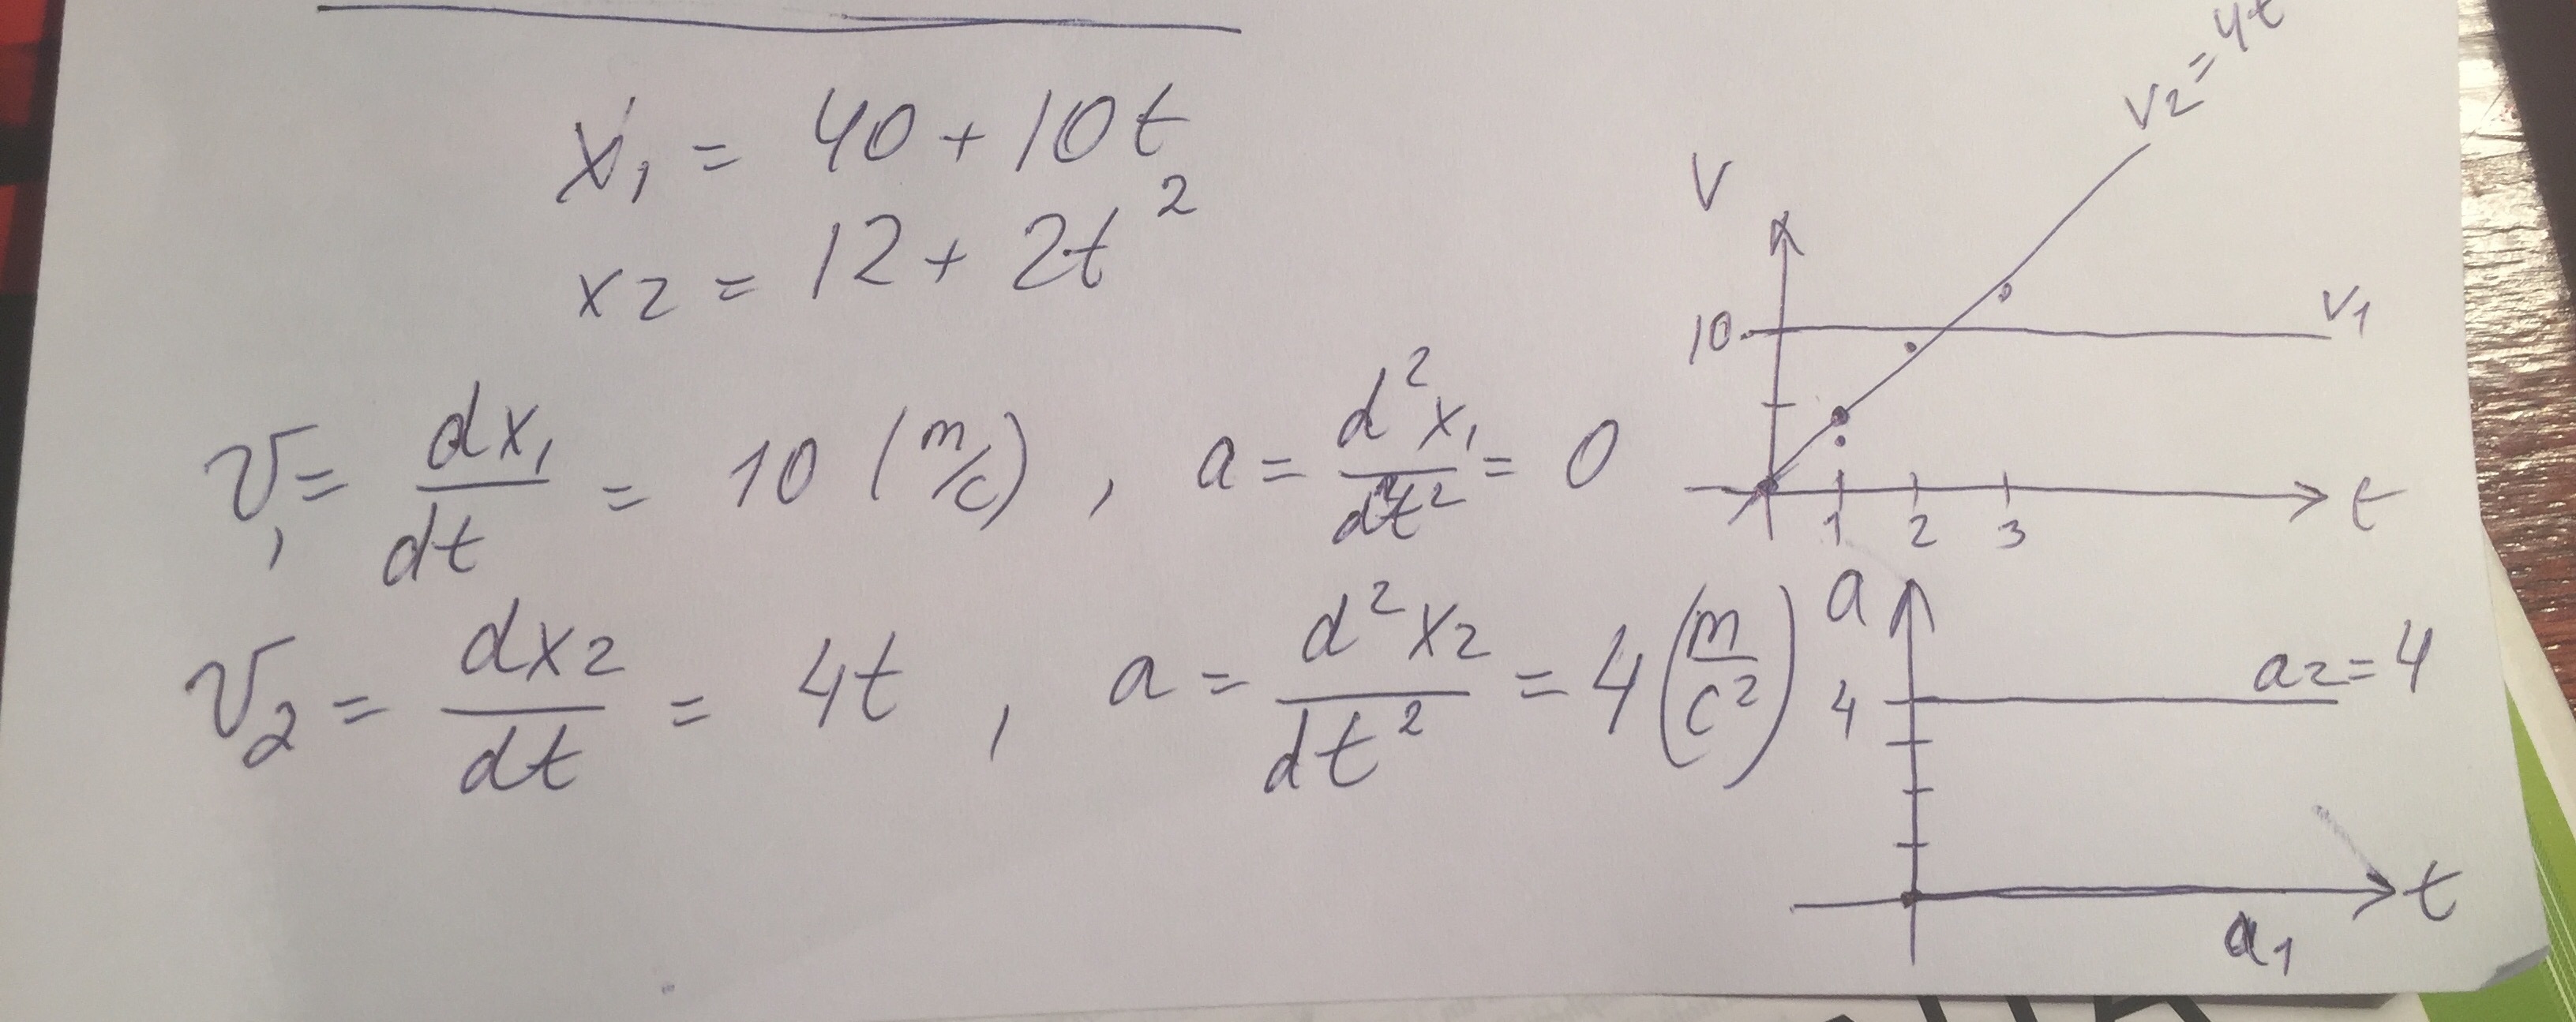 x₁ = 40 + 10t
x2 = 12 + 2t²
v₁ = dx₁/dt = 10 (m/c), a = d²x₁/dt² = 0
v₂ = dx2/dt = 4t, a = d²x2/dt² = 4 (m/c²)
V
v2 = 4t
10
v1
1 2 3
t
a
a2 = 4
4
t
a1